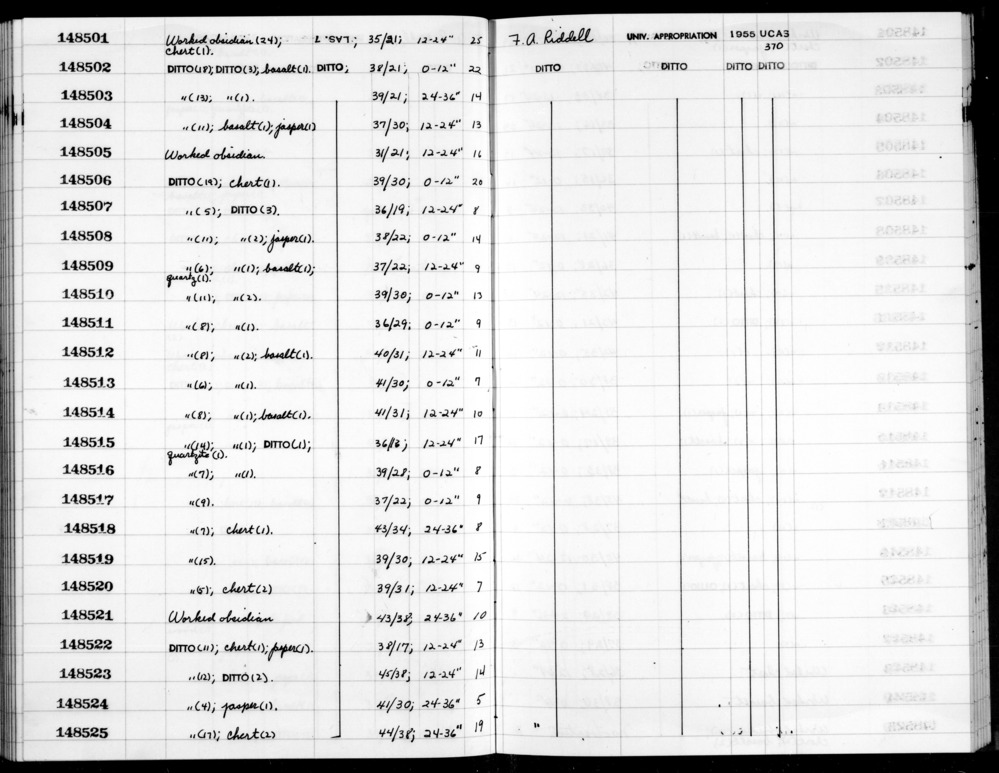 148501 Worked obsidian (24); LAS.; 35/21; 12-24" 25 F. A. Riddell UNIV. APPROPRIATION 1955 UCAS
chert (1). 370
148502 DITTO (18); DITTO (3); basalt (1). DITTO; 38/21; 0-12" 22 DITTO DITTO DITTO DITTO
148503 " (13); " (1). 39/21; 24-36" 14
148504 " (11); basalt (1); jasper (1) 37/30; 12-24" 13
148505 Worked obsidian. 31/21; 12-24" 16
148506 DITTO (19); chert (1). 39/30; 0-12" 20
148507 " (5); DITTO (3). 36/19; 12-24" 8
148508 " (11); " (2); jasper (1). 38/22; 0-12" 14
148509 " (6); " (1); basalt (1); 37/22; 12-24" 9
quartz (1).
148510 " (11); " (2). 39/30; 0-12" 13
148511 " (8); " (1). 36/29; 0-12" 9
148512 " (8); " (2); basalt (1). 40/31; 12-24" 11
148513 " (6); " (1). 41/30; 0-12" 7
148514 " (8); " (1); basalt (1). 41/31; 12-24" 10
148515 " (14); " (1); DITTO (1); 12-24" 17
quartzite (1).
148516 " (7); " (1). 39/28; 0-12" 8
148517 " (9). 37/22; 0-12" 9
148518 " (7); chert (1). 43/34; 24-36" 8
148519 " (15). 39/30; 12-24" 15
148520 " (5); chert (2) 39/31; 12-24" 7
148521 Worked obsidian 43/38; 24-36" 10
148522 DITTO (11); chert (1); jasper (1). 38/17; 12-24" 13
148523 " (12); DITTO (2). 45/38; 12-24" 14
148524 " (4); jasper (1). 41/30; 24-36" 5
148525 " (17); chert (2) 44/38; 24-36" 19 "